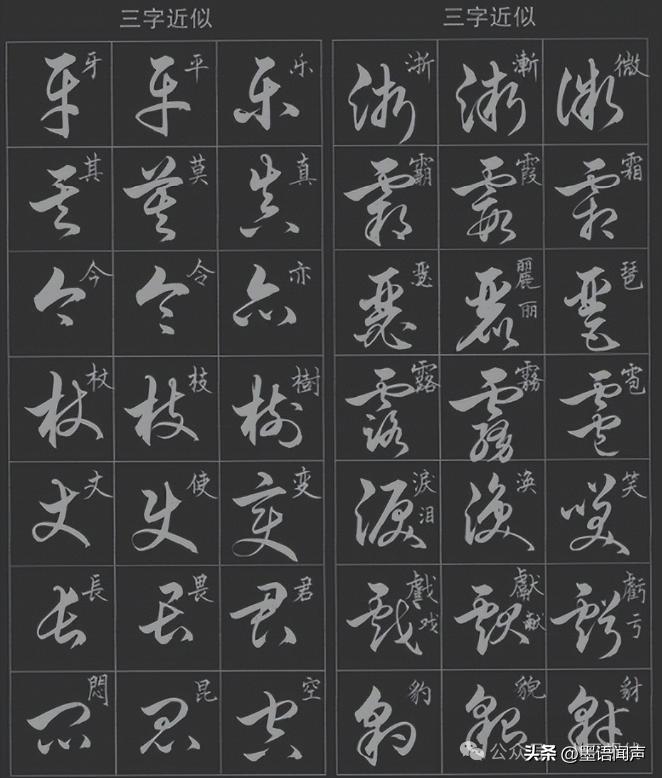 三字近似
牙 平 乐
其 莫 真
今 令 亦
杖 枝 樹
丈 使 变
長 畏 君
悶 昆 空
三字近似
浙 漸 微
霸 霞 霜
瑟 麗丽 琵
露 霧 雹
淚泪 涣 笑
戲戏 獻献 虧亏
豹 貌 豺
头条 @墨语闻声